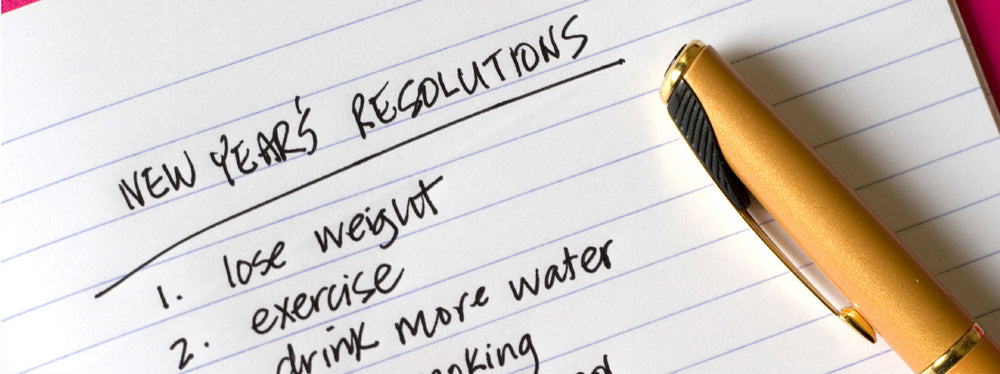 NEW YEAR'S RESOLUTIONS
1. lose weight
2. exercise
drink more water